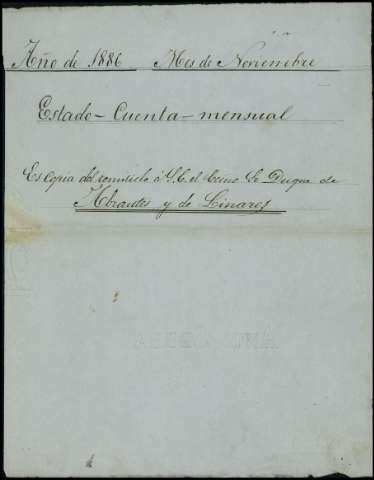 Año de 1886 Mes de Noviembre
Estado - Cuenta - mensual
Es copia del remitido á S. E. el Excmo Sr Duque de
Abrantes y de Linares